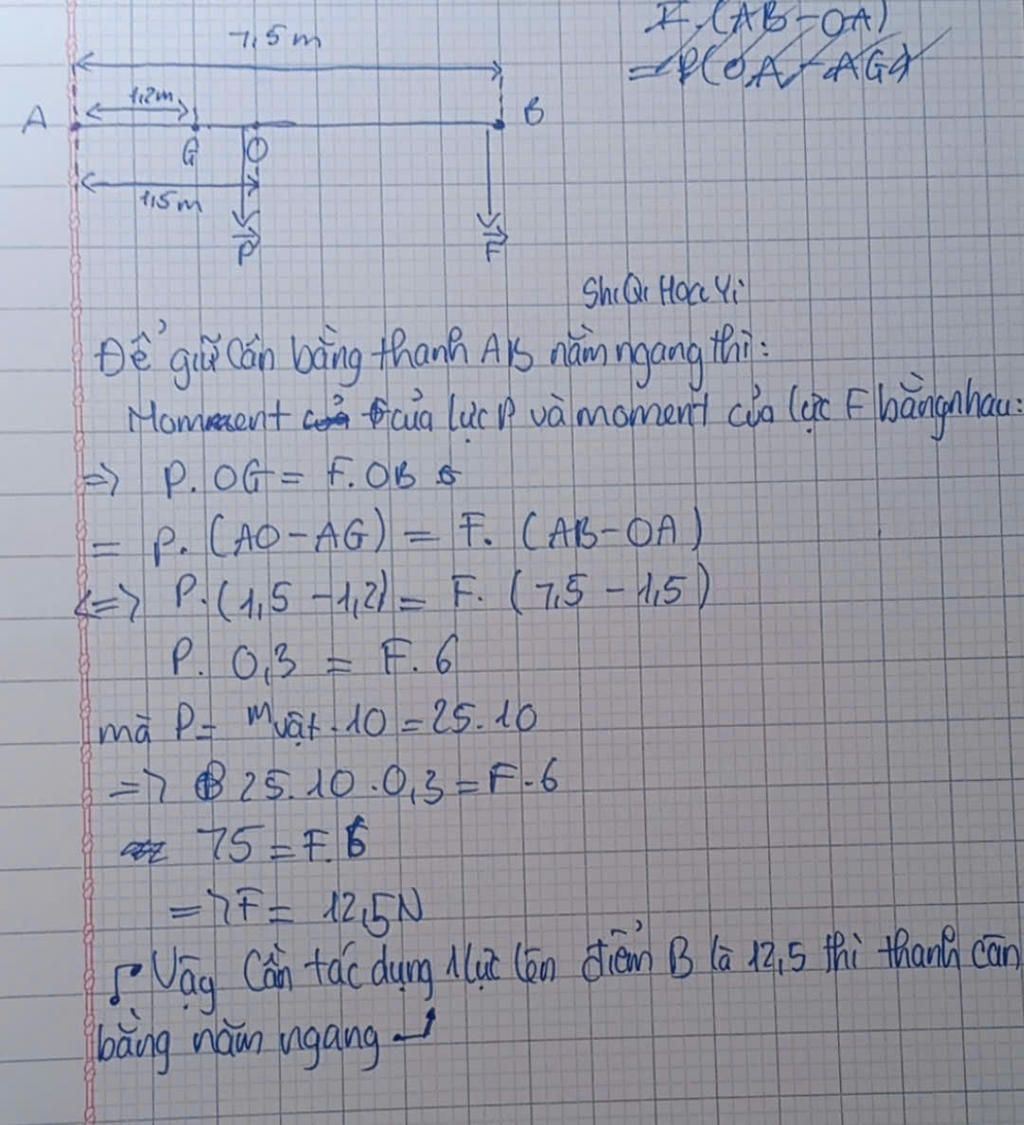 7,5m
F.(AB-OA)
=P(OA-AG)
1,2m
A
B
G
O
1,5m
P
F
Shi Qi Hocc Yi
Để giữ cân bằng thanh AB nằm ngang thì:
Moment của của lực P và moment của lực F bằng nhau:
=> P. OG = F. OB
= P. (AO-AG) = F. (AB-OA)
<=> P.(1,5 -1,2) = F. (7,5 - 1,5)
P. 0,3 = F. 6
mà P= mvật .10 = 25.10
=> 25.10.0,3 = F.6
75 = F.6
=> F = 12,5N
Vậy Cần tác dụng 1 lực lên điểm B là 12,5 thì thanh cân
bằng nằm ngang